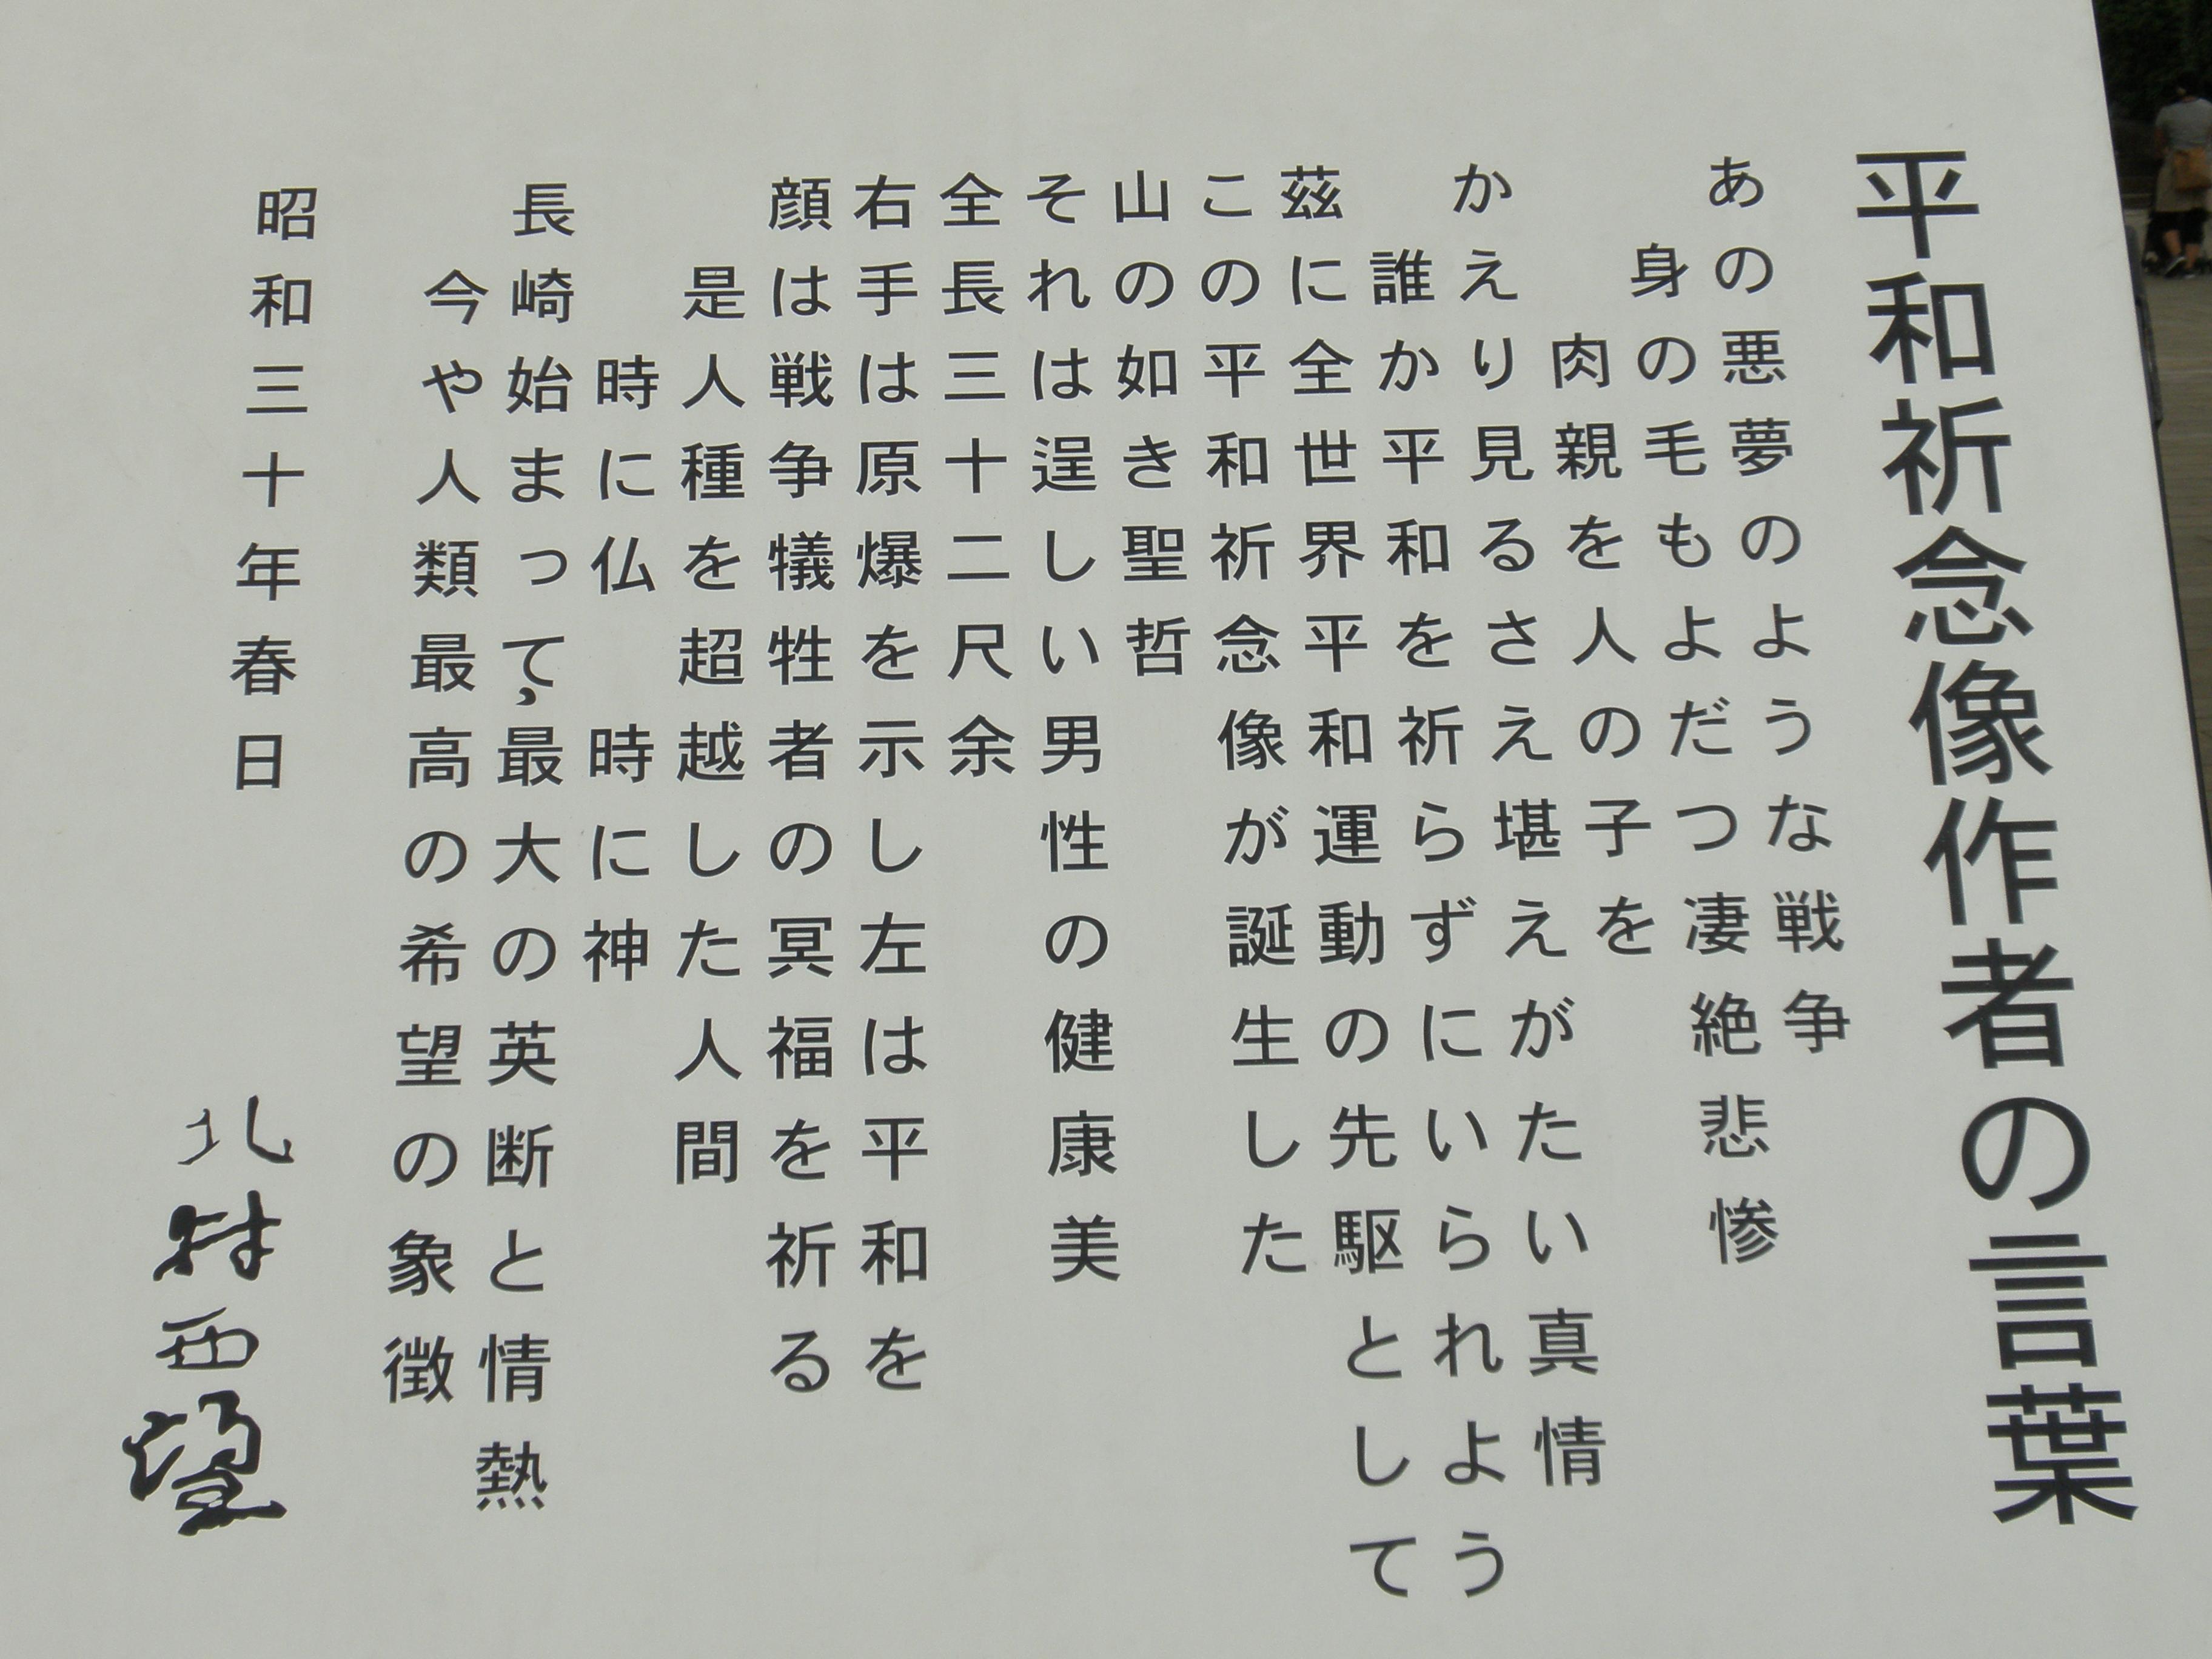 平和祈念像作者の言葉
あの悪夢のような戦争
身の毛もよだつ凄絶悲惨
肉親を人の子を
かえり見るさえ堪えがたい真情
誰か平和を祈らずにいられよう
茲に全世界平和運動の先駆として
この平和祈念像が誕生した
山の如き聖哲
それは逞しい男性の健康美
全長三十二尺余
右手は原爆を示し左は平和を
顔は戦争犠牲者の冥福を祈る
是人種を超越した人間
時に仏 時に神
長崎始まって、最大の英断と情熱
今や人類最高の希望の象徴
昭和三十年春日
北村西望